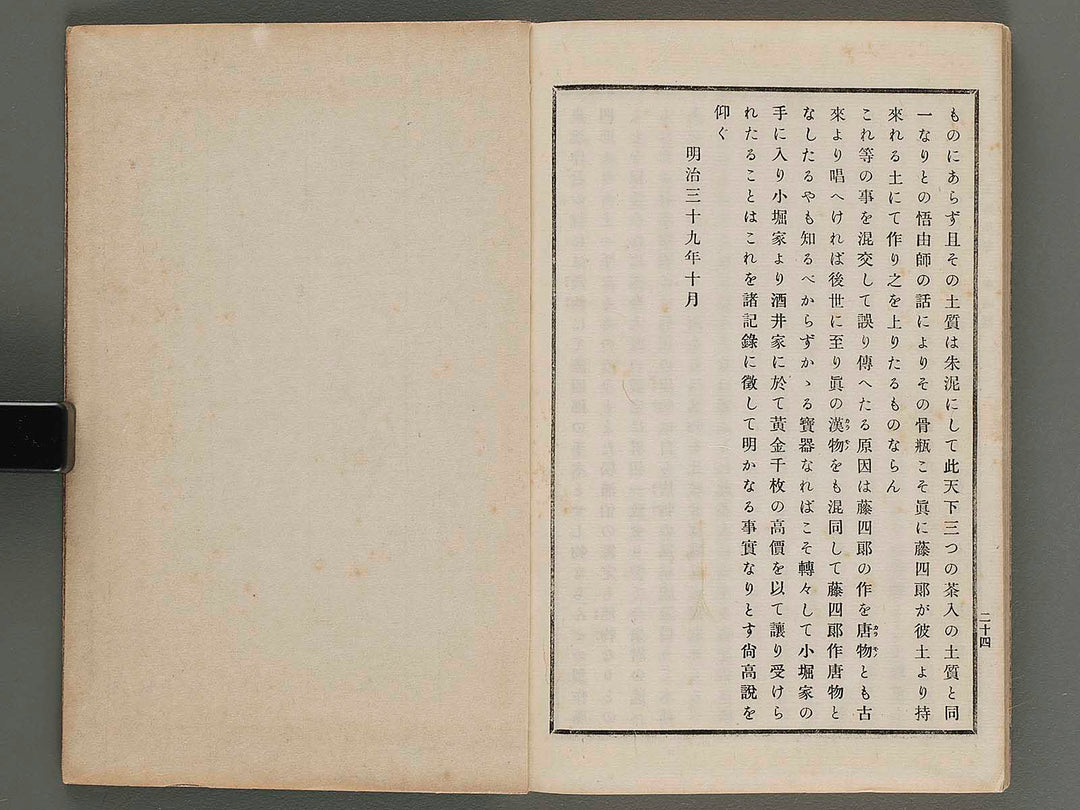 ものにあらず且その土質は朱泥にして此天下三つの茶入の土質と同
一なりとの悟由師の話によりその骨瓶こそ眞に藤四郞が彼土より持
來れる土にて作り之を上りたるものならん
これ等の事を混交して誤り傳へたる原因は藤四郞の作を唐物とも古
來より唱へければ後世に至り眞の漢物をも混同して藤四郞作唐物と
なしたるやも知るべからずかゝる寶器なればこそ轉々して小堀家の
手に入り小堀家より酒井家に於て黃金千枚の高價を以て讓り受けら
れたることはこれを諸記錄に徵して明かなる事實なりとす尙高說を
仰ぐ
明治三十九年十月
二十四